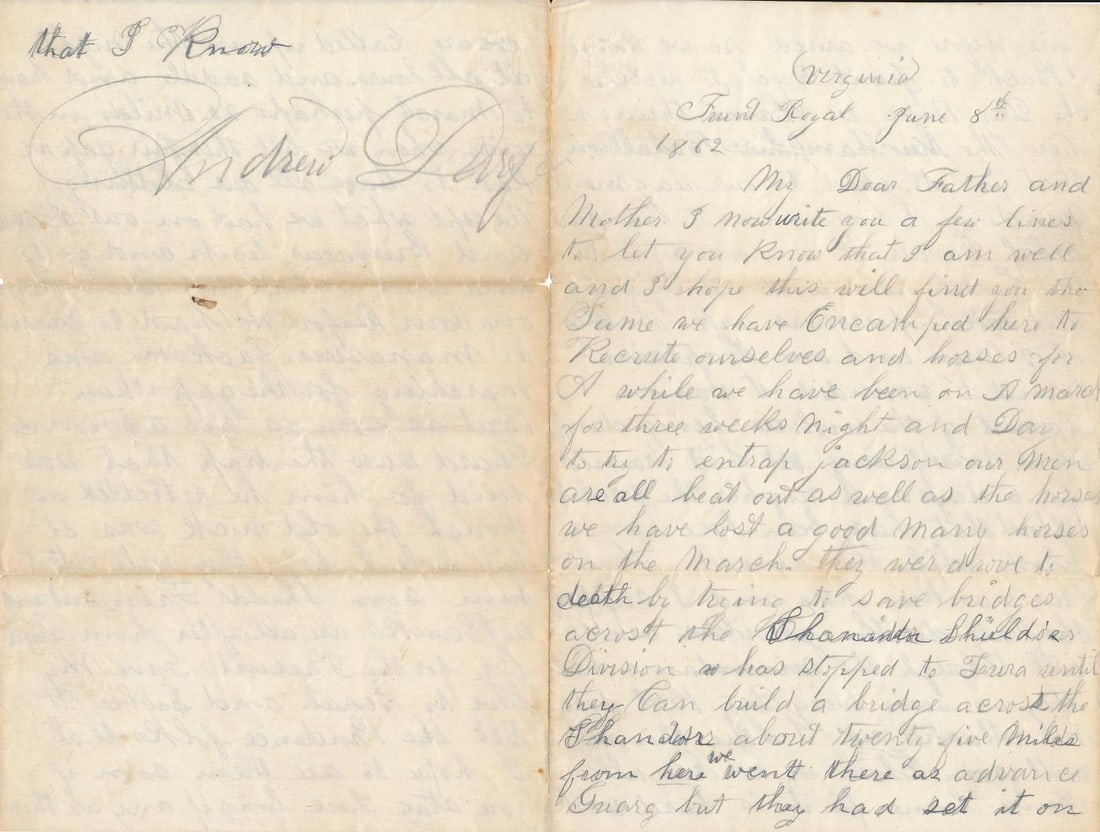 that I Know
Andrew
(Virginia)
Frunt Royal June 8th
1862
My Dear Father and
Mother I now write you a few lines
to let you Know that I am well
and I hope this will find you the
Same we have Encamped here to
Recrute ourselves and horses for
A while we have been on A march
for three weeks Night and Day
to try to entrap jackson our Men
are all beat out as well as the horses
we have lost a good Many horses
on the March. they wer drove to
death by trying to save bridges
acrost the Shieldes
Division has stopped to until
they Can build a bridge acrost the
about twenty five Miles
from here we went there as advance
Guarg but they had set it on